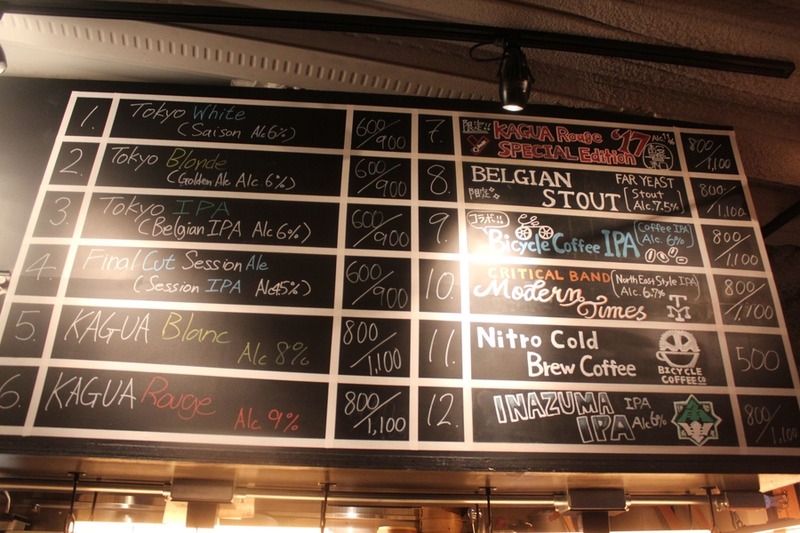 1. Tokyo White
(Saison Alc 6%)
600/900
2. Tokyo Blonde
(Golden Ale Alc 6%)
600/900
3. Tokyo IPA
(Belgian IPA Alc 6%)
600/900
4. Final Cut Session Ale
(Session IPA Alc 4.5%)
600/900
5. KAGUA Blanc
Alc 8%
800/1,100
6. KAGUA Rouge
Alc 9%
800/1,100
7. 限定!! KAGUA Rouge '17
SPECIAL Edition
800/1,100
8. BELGIAN FAR YEAST
限定 STOUT (Stout
Alc. 7.5%)
800/1,100
9. コラボ!!
Bicycle Coffee IPA (Coffee IPA
Alc. 6%)
800/1,100
10. CRITICAL BAND (North East Style IPA
Alc. 6.7%)
Modern Times
TM
800/1,100
11. Nitro Cold
Brew Coffee
BICYCLE
COFFEE CO
500
12. INAZUMA IPA
IPA Alc 6%
800/1,100